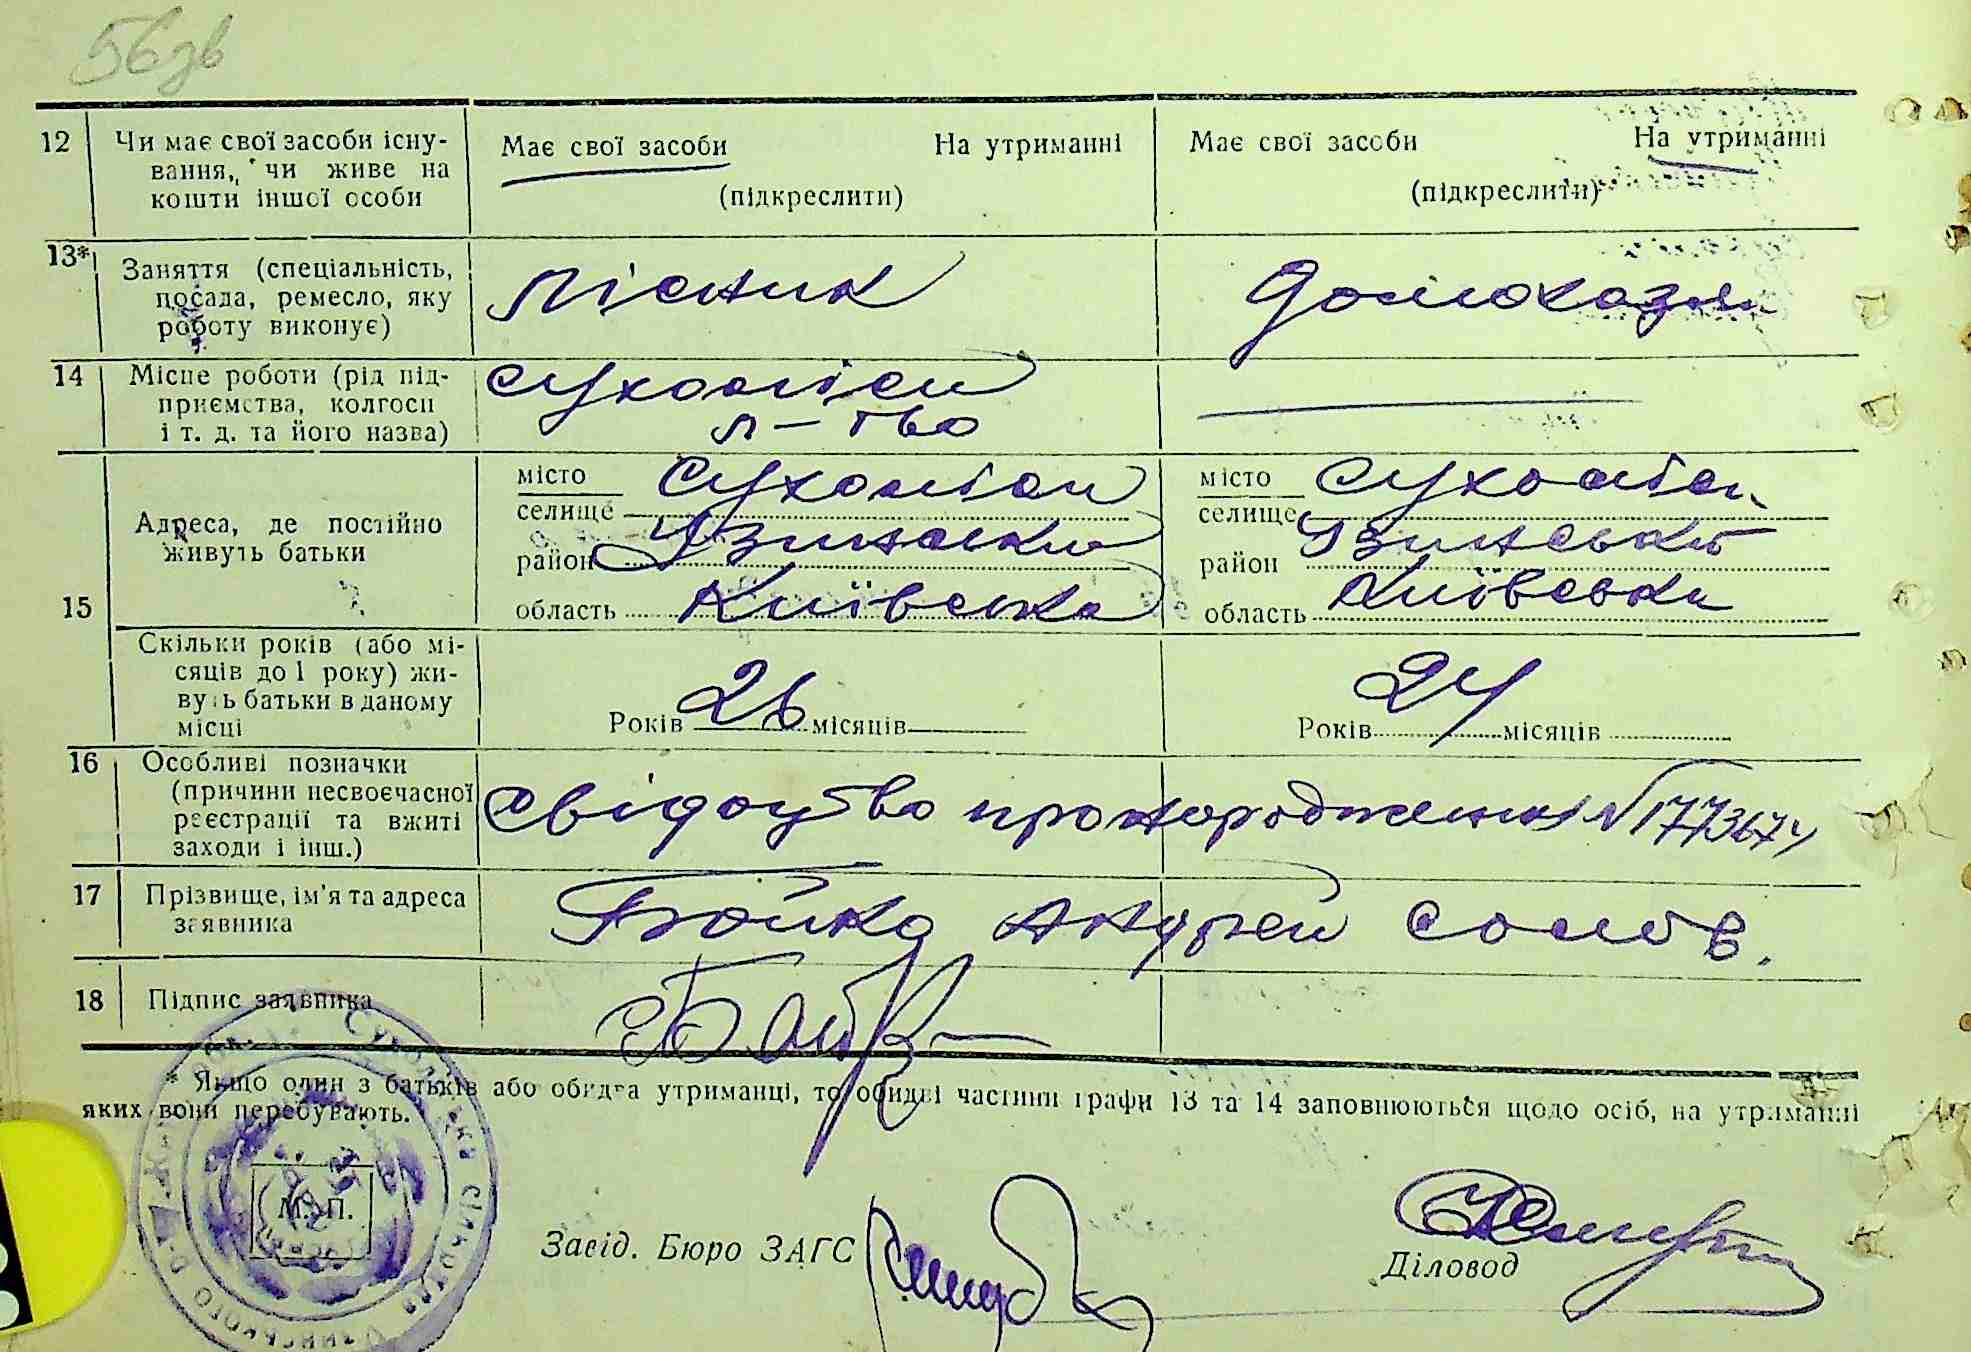 56 зв
12 Чи має свої засоби існу- Має свої засоби На утриманні Має свої засоби На утриманні
вання, чи живе на
кошти іншої особи (підкреслити) (підкреслити)
13* Заняття (спеціальність, Лісник Домохазяй
посада, ремесло, яку
роботу виконує)
14 Місце роботи (рід під- Сухоліси
приємства, колгосп л-тво
і т. д. та його назва)
15 Адреса, де постійно живуть батьки
місто Сухоліси місто Сухоліси
селище селище
район Узинськи район Узинський
область Київська область Київська
Скільки років (або мі-
сяців до 1 року) жи-
вуть батьки в даному
місці Років 26 місяців Років 24 місяців
16 Особливі позначки
(причини несвоєчасної Свідоцтво про народження №
реєстрації та вжиті
заходи і інш.)
17 Прізвище, ім'я та адреса Бойко Андрей
заявника
18 Підпис заявника
* Якщо один з батьків або обидва утриманці, то обидві частини графи 13 та 14 заповнюються щодо осіб, на утриманні
яких вони перебувають.
М. П.
Завід. Бюро ЗАГС Діловод